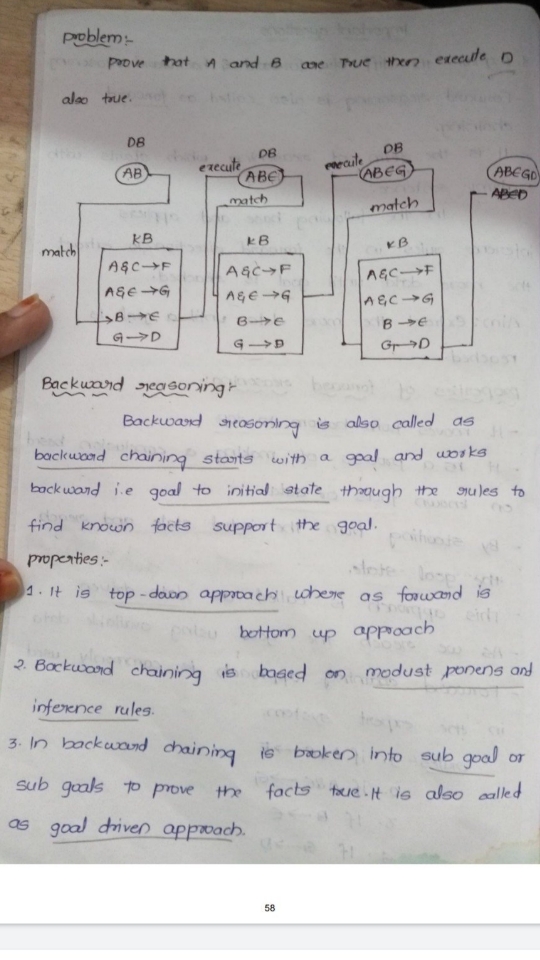 problem:-
prove that A and B are True then execute D
also true.
DB DB DB
AB execute ABE execute ABEG ABEGD
match match ABED
match KB KB KB
A&C→F A&C→F A&C→F
A&E→G A&E→G A&C→G
B→E B→E B→E
G→D G→D G→D
Backward reasoning:-
Backward reasoning is also called as
backward chaining starts with a goal and works
backward i.e goal to initial state through the rules to
find known facts support the goal.
properties:-
1. It is top-down approach where as forward is
bottom up approach
2. Backward chaining is based on modust ponens and
inference rules.
3. In backward chaining is broken into sub goal or
sub goals to prove the facts true. It is also called
as goal driven approach.
58